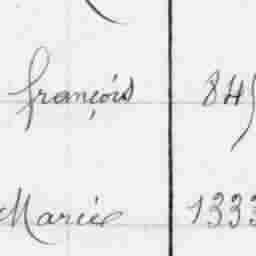 françois 845
Mariée 1333